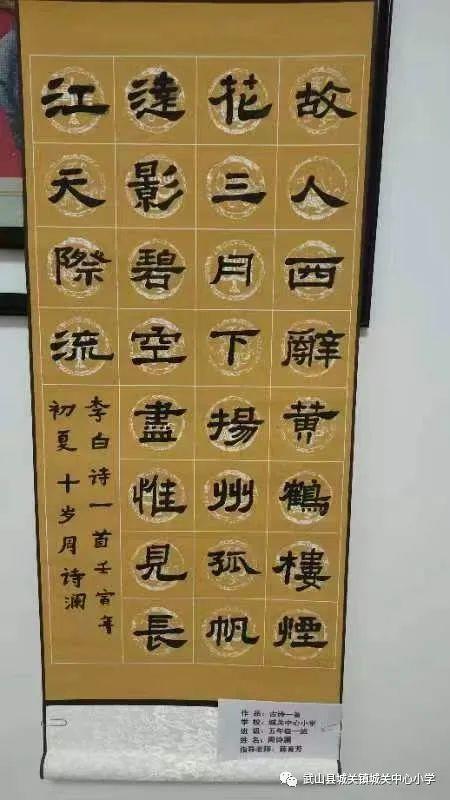 故人西辭黄鶴樓煙
花三月下揚州孤帆
逺影碧空盡惟見長
江天際流
李白诗一首壬寅年
初夏 十岁周诗澜
作 品：古诗一首
学 校：城关中心小学
班 级：五年级一班
姓 名：周诗澜
指导老师：
武山县城关镇城关中心小学